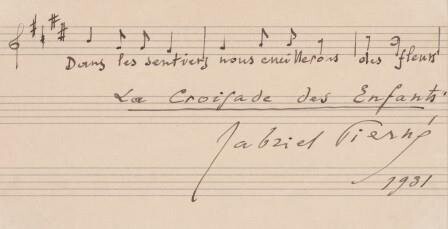 Dans les sentiers nous cueillerons des fleurs
La Croisade des Enfants
Gabriel Pierné
1931